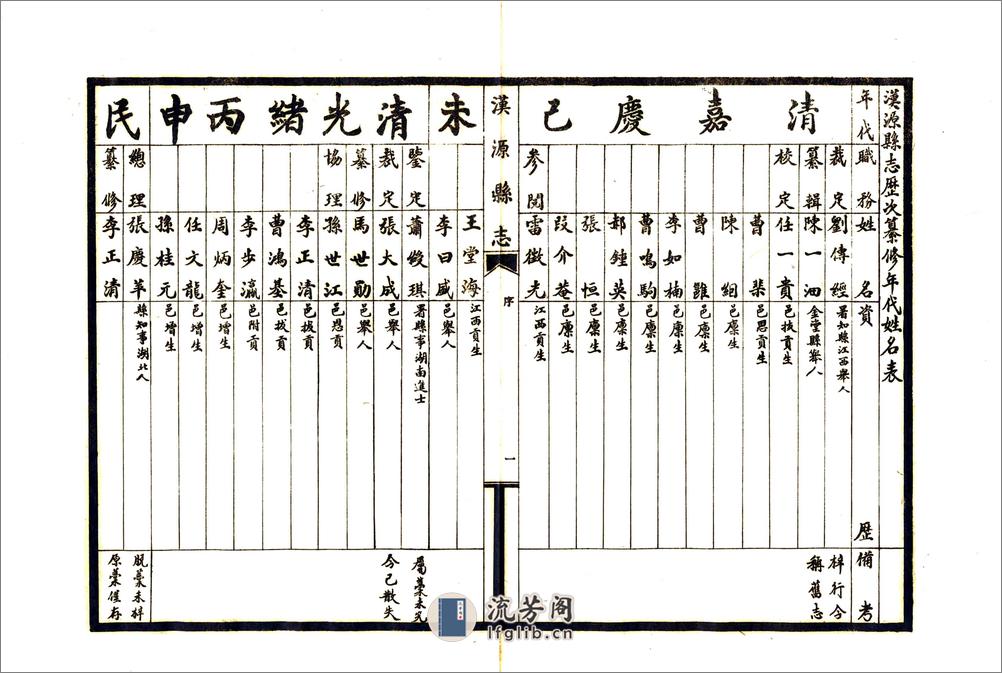 漢源縣志歷次纂修年代姓名表
年代 職務 姓名 資歷 備考
清嘉慶己未
裁定 劉傳經 署知縣江西舉人 梓行今
纂輯 陳一沺 金堂縣舉人 稱舊志
校定 任一貴 邑拔貢生
曹琹 邑恩貢生
陳絪 邑廩生
曹雝 邑廩生
李如楠 邑廩生
曹鳴駒 邑廩生
郝鍾英 邑廩生
張恒 邑廩生
段介菴 邑廩生
參閱 雷徵光 江西貢生
漢源縣志
序
一
王堂海 江西貢生
李曰威 邑舉人
清光緒丙申
鑒定 蕭俊琪 署縣事湖南進士 屬藁未完
裁定 張大成 邑舉人 今已散失
纂修 馬世勛 邑舉人
協理 孫世江 邑恩貢
李正清 邑拔貢
曹鴻基 邑拔貢
李步瀛 邑附貢
周炳奎 邑增生
任文龍 邑增生
孫桂元 邑增生
民
總理 張慶革 縣知事湖北人 脫藁未梓
纂修 李正清 原藁僅存
流芳阁
lfglib.cn